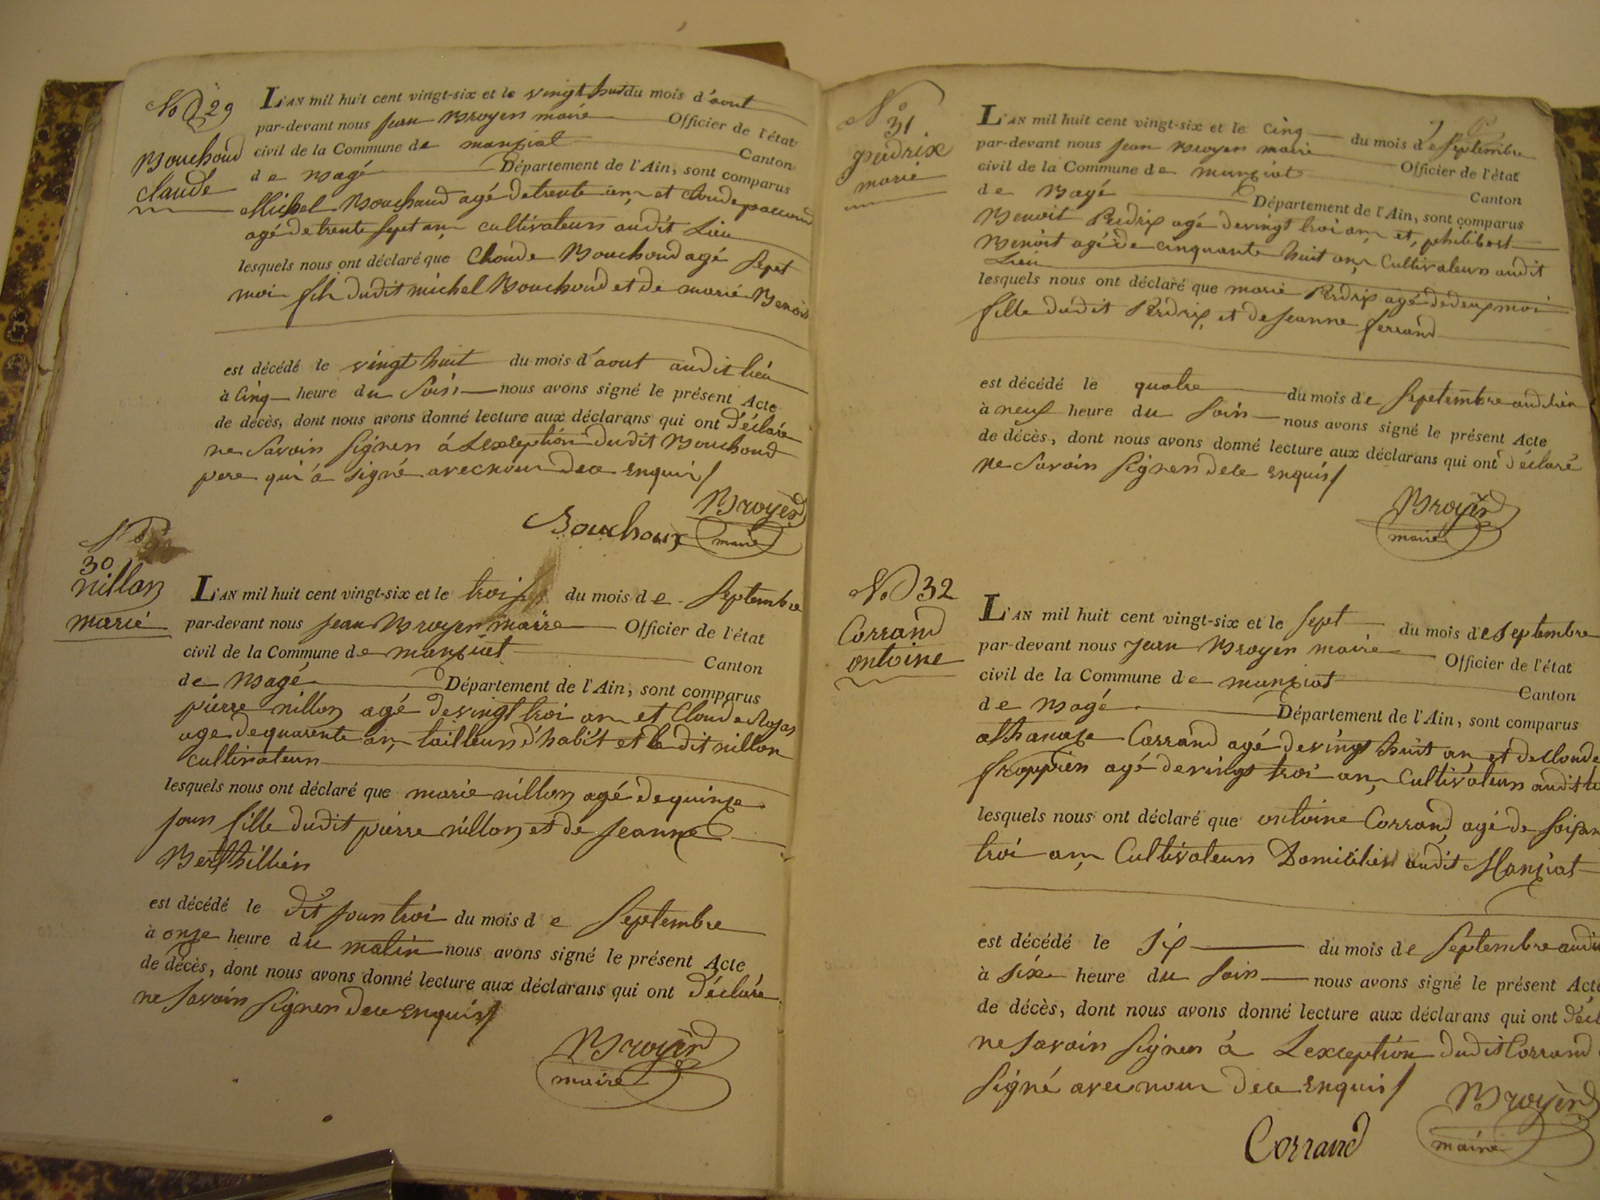 No 29
Bouchoud
Claude
L'AN mil huit cent vingt-six et le vingt huit du mois d'aout
par-devant nous jean Broyer maire Officier de l'état
civil de la Commune de manziat Canton
de Bagé Département de l'Ain, sont comparus
Michel Bouchoud agé de trente ans et Claude paccoud
agé de trente sept ans cultivateurs audit Lieu
lesquels nous ont déclaré que Claude Bouchoud agé sept
moi fils dudit michel Bouchoud et de marie Benoit
est décédé le vingt huit du mois d'aout audit lieu
à cinq heure du Soir nous avons signé le présent Acte
de décès, dont nous avons donné lecture aux déclarans qui ont déclaré
ne Savoir Signer á Lexception dudit Bouchoud
pere qui á signé avec nous de ce Enquis
Bouchoux Broyer
maire
No
30
nillon
marie
L'AN mil huit cent vingt-six et le trois du mois de Septembre
par-devant nous jean Broyer maire Officier de l'état
civil de la Commune de manziat Canton
de Bagé Département de l'Ain, sont comparus
pierre nillon agé de vingt troi an et Claude
age de quarente an tailleur d'habit et le dit nillon
cultivateur
lesquels nous ont déclaré que marie nillon agé de quinze
jour fille dudit pierre nillon et de jeanne
Berthillier
est décédé le dit jour troi du mois de Septembre
à onze heure du matin nous avons signé le présent Acte
de décès, dont nous avons donné lecture aux déclarans qui ont déclaré
ne Savoir Signer de ce Enquis
Broyer
maire
No
31
perdrix
marie
L'AN mil huit cent vingt-six et le Cinq du mois de Septembre
par-devant nous jean Broyer maire Officier de l'état
civil de la Commune de manziat Canton
de Bagé Département de l'Ain, sont comparus
Benoit Perdrix agé de vingt troi an et philibert
Benoit agé de cinquante huit an Cultivateurs audit
Lieu
lesquels nous ont déclaré que marie Perdrix agé de deux moi
fille dudit Perdrix et de jeanne ferrand
est décédé le quatre du mois de Septembre audit lieu
à neuf heure du Soir nous avons signé le présent Acte
de décès, dont nous avons donné lecture aux déclarans qui ont déclaré
ne Savoir Signer de ce Enquis
Broyer
maire
No 32
Corrand
antoine
L'AN mil huit cent vingt-six et le Sept du mois de Septembre
par-devant nous jean Broyer maire Officier de l'état
civil de la Commune de manziat Canton
de Bagé Département de l'Ain, sont comparus
athanaze Corrand agé de vingt huit an et de Claude
agé de vingt troi an Cultivateurs audit
lesquels nous ont déclaré que antoine Corrand agé de
troi an Cultivateur Domicilier audit Manziat
est décédé le Six du mois de Septembre audit
à Six heure du Soir nous avons signé le présent Acte
de décès, dont nous avons donné lecture aux déclarans qui ont
ne Savoir Signer á Lexception dudit Corrand
Signé avec nous de ce Enquis
Corrand Broyer
maire